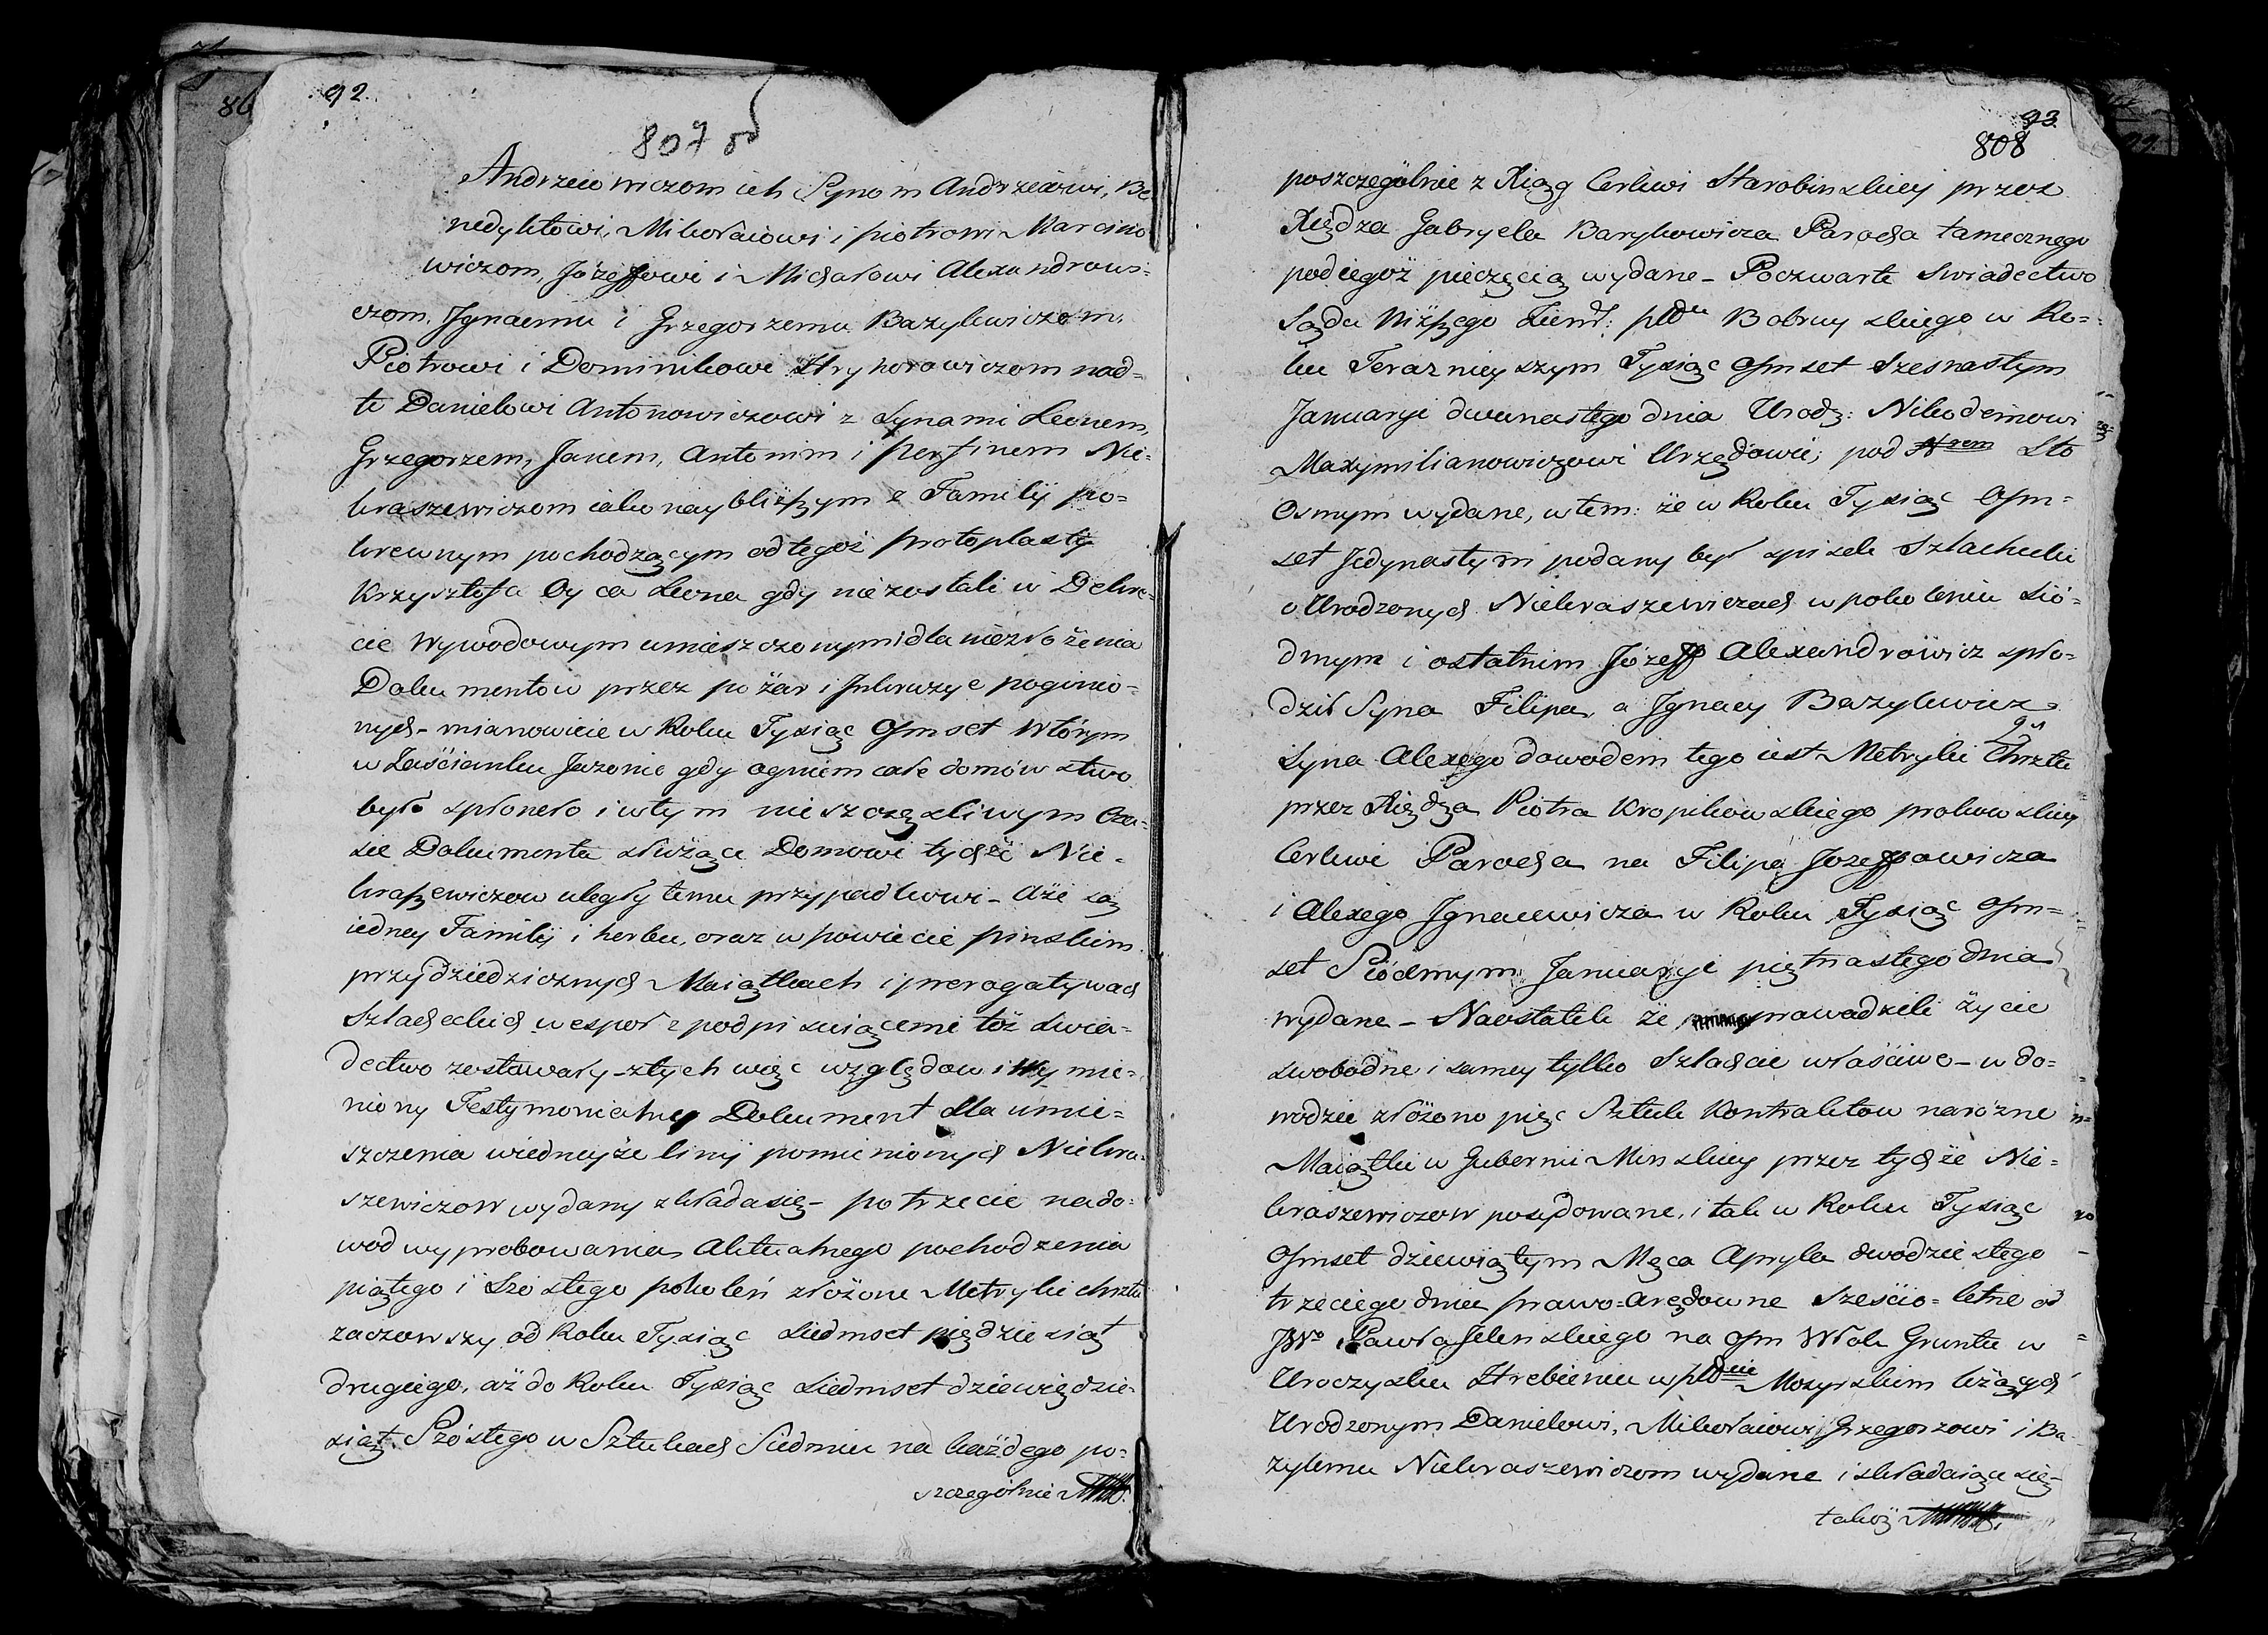 86
92.
807 od
Andrzeiowiczom ich Synom Andrzeiowi, Be-
nedyktowi, Mikołaiowi i piotrowi Marcino-
wiczom, Józeffowi i Michałowi Alexandrowi-
czom, Jgnacmu i Grzegorzemu Bazylewiczom,
Piotrowi i Dominikowi Hryhorowiczom nad-
to Danielowi Antonowiczowi z Synami Leonem,
Grzegorzem, Janem, Antonim i perfinem Nie-
kraszewiczom iako naybliższym z Familij po-
krewnym pochodzącym od tegoż protoplasty
Krzysztofa Oyca Leona gdy nie zostali w Dekre-
cie Wywodowym umieszczonymi dla niezłożenia
Dokumentow przez pożar i Jnkursye poginio-
nych - mianowicie w Roku Tysiąc Ośmset Wtórym
w Zaścianku Jazonie gdy ogniem całe domówstwo
było spłoneło i wtym nieszczęśliwym Cza-
sie Dokumenta służące Domowi tychże Nie-
kraszewiczow uległy temu przypadkowi - Aże są
iedney Familij i herbu, oraz w powiecie pinskim
przy dziedzicznych Maiątkach i prerogatywach
Szlacheckich wespoł z podpisuiącemi toż swia-
dectwo zostawały - z tych więc względow i Wymie-
niony Testymonialny Dokument dla umie-
szczenia wiedneyże linij pomienionych Niekra-
szewiczow wydany składa się - po trzecie na do-
wod wyprobowania Aktualnego pochodzenia
piątego i Szostego pokoleń złożone Metryki chrztu
zaczowszy od Roku Tysiąc Siedmset pięćdziesiąt
drugiego, aż do Roku Tysiąc Siedmset dziewiędzie-
siąt Szóstego w Sztukach Siedmiu na każdego po-
szczegolnie
93.
808
poszczególnie z Xiąg Cerkwi Starobinskiey przez
Xiędza Gabryela Barykowicza Parocha tamecznego
pod iegoż pieczęcią wydane - Poczwarte Swiadectwo
Sądu Niższego Ziem: pttu Bobruyskiego w Ro-
ku Teraznieyszym Tysiąc Ośmset Szesnastym
Januaryi dwunastego dnia Urodz: Nikodemowi
Maxymilianowiczowi Urzędowie, pod Nrem Sto
Osmym wydane, wtem: że w Roku Tysiąc Ośm-
set Jedynastym podany był spisek Szlachecki
o Urodzonych Niekraszewiczach w pokoleniu Sió-
dmym i ostatnim Józeff Alexandrowicz spło-
dził Syna Filipa, a Jgnacy Bazylewicz
Syna Alexego dowodem tego iest Metryki Chrztu
przez Xiędza Piotra Kropikowskiego prokowskiey
Cerkwi Parocha na Filipa Jozeffowicza
i Alexego Jgnacewicza w Roku Tysiąc Ośm-
set Siódmym Januaryi piętnastego dnia
wydane - Naostatek że prowadzili życie
swobodne i samey tylko Szlachcie właściwe - w do-
wodzie złóżono pięć Sztuk Kontraktow na różne
Maiątki w Gubernii Minskiey przez tychże Nie-
kraszewiczow posydowane, i tak w Roku Tysiąc
Ośmset dziewiątym Męca Apryla dwodziestego
trzeciego dnia prawo-arędowne Sześcio-letne od
JWo Pawła Jelenskiego na Ośm Włok Gruntu w
Uroczysku Hrebieniu w pttcie Mozyrskim liżących
Urodzonym Danielowi, Mikołaiowi, Grzegorzowi i Ba-
zylemu Niekraszewiczom wydane i składaiące się
takoż